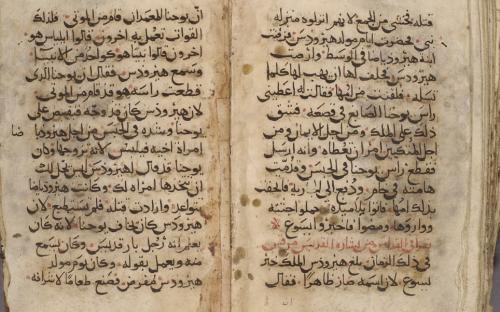 قتله فخشي من الجمع لانهم انزلوه منزلة
نبي فحضرت ايام مولد هيرودس فرقصت
ابنة هيرودياسا في الوسط وارضت
هيرودس فحلف لها ان يهب لها كلما
تسله فلقنت من امها فقالت له اعطيني
راس يوحنا الصابغ في قصعة فشق
ذلك على الملك ومن اجل الايمان ومن
اجل المتكيين امر ان تعطاه وانه ارسل
فقطع راس يوحنا في الحبس وقدمت
هامته في جام ودفع الى فالحقت
بذلك امها فاتوا تلاميذه حملوا جثته
وواروها ومضوا فاخبروا ايسوع
في ذلك الزمان بلغ هيرودس الملك خبر
يسوع لان اسمه صار ظاهرا فقال
ان يوحنا المعمدان قام من الموتى فلذلك
القوات تعمل به اخرون قالوا ايلياس هو
اخرون قالوا نبيا هو كواحد من الانبيا
وسمع هيرودس فقال ان يوحنا الذي
قطعت راسه هو قد قام من الموتى
لان هيرودس كان قد وجه فقبض على
يوحنا وشده في الحبس من اجل هيروديا
امراة اخيه فيلبس لانه تزوجها وان
يوحنا قد قال لهيرودس ليس يحل لك
ان تتخذها امراة لك وكانت هيروديا
وارادت قتله فلم تستطيع لان
هيرودس كان يخاف يوحنا لانه كان
يعلم انه رجل بار قديس وكان يسمع
منه ويعمل بقوله وكان يوم مولد
هيرودس فصنع طعاما لاشرافه